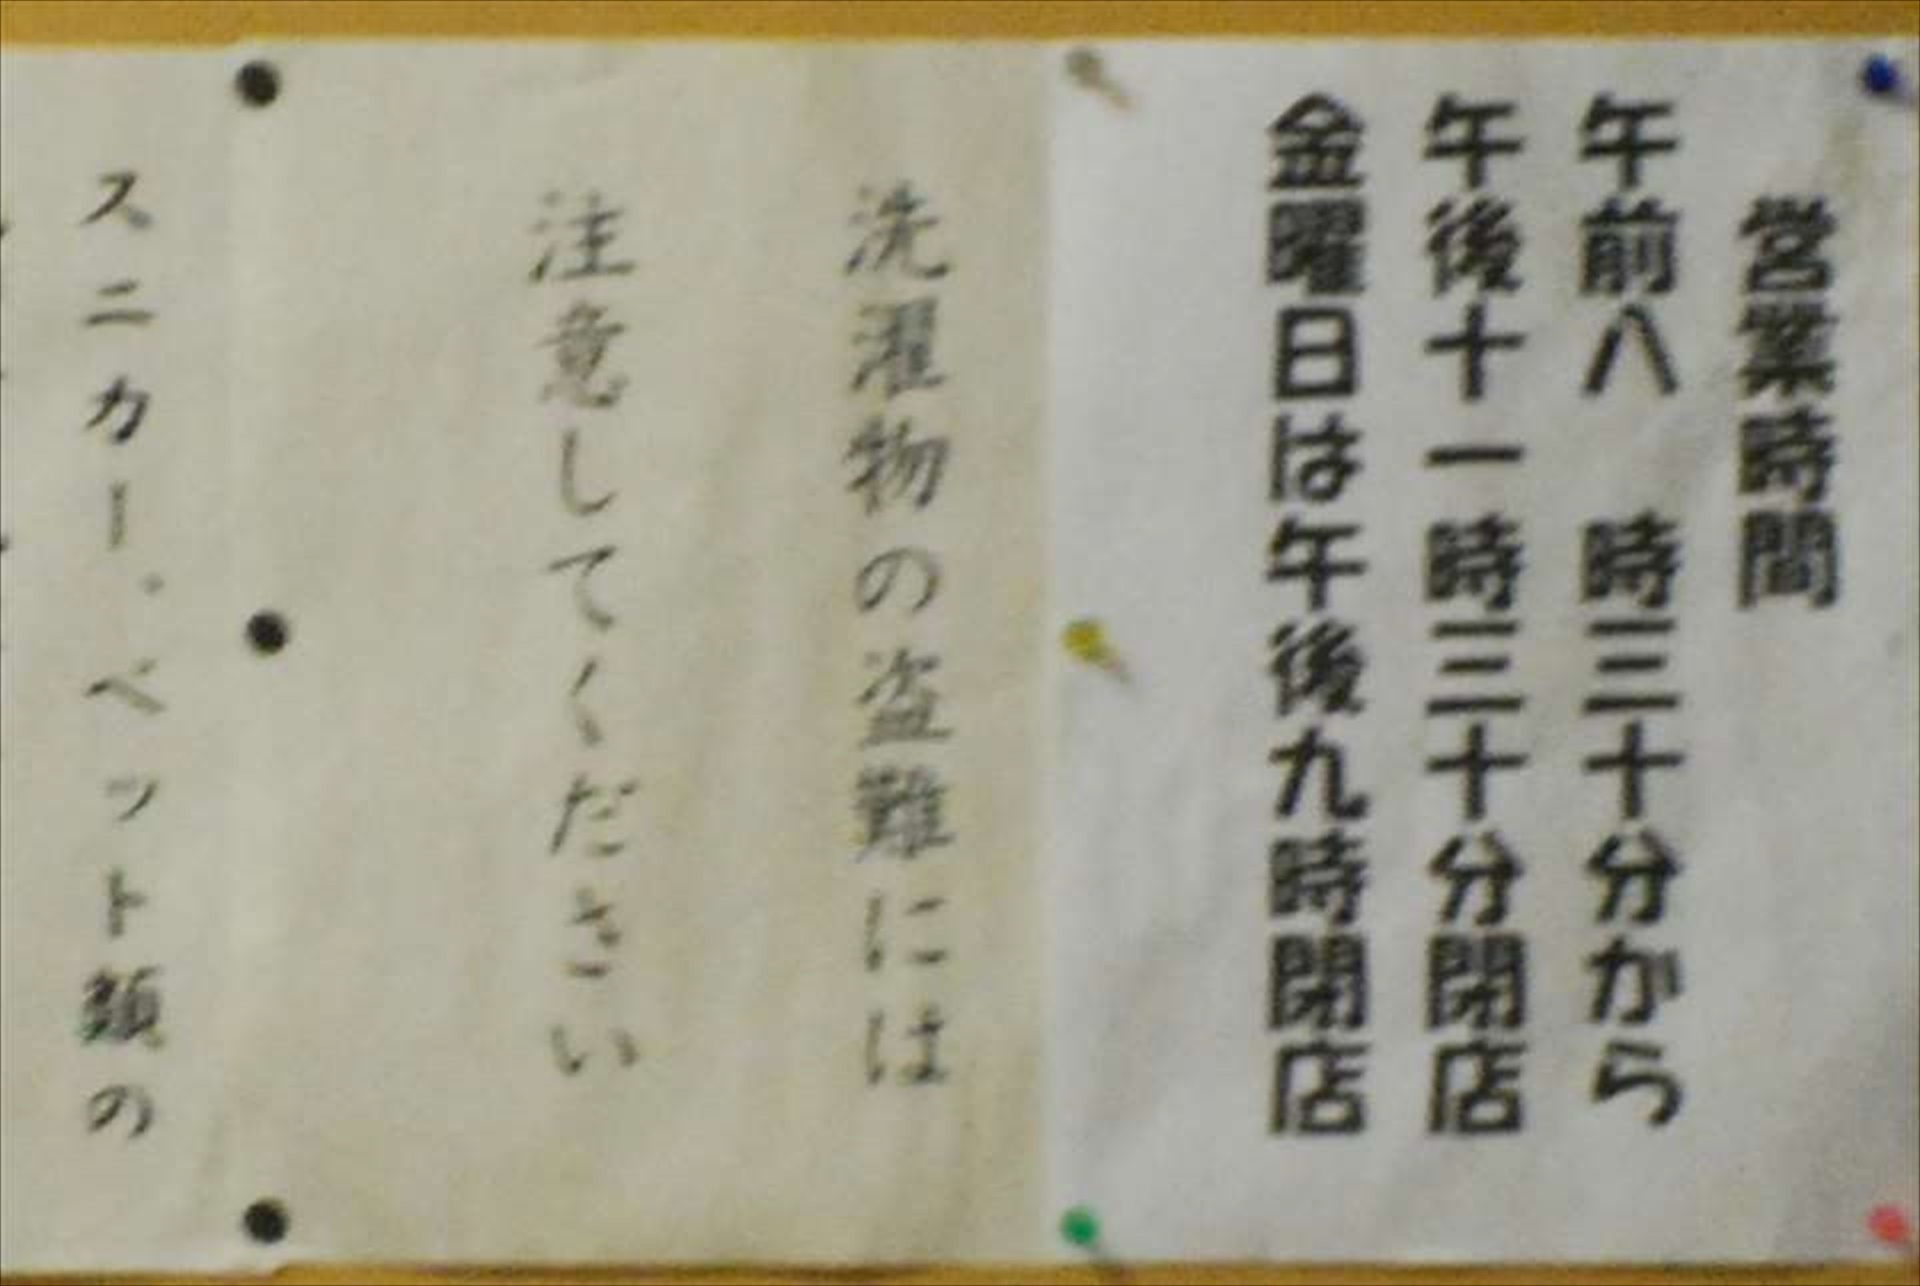 営業時間
午前八　時三十分から
午後十一時三十分閉店
金曜日は午後九時閉店
洗濯物の盗難には
注意してください
スニカー・ペット類の